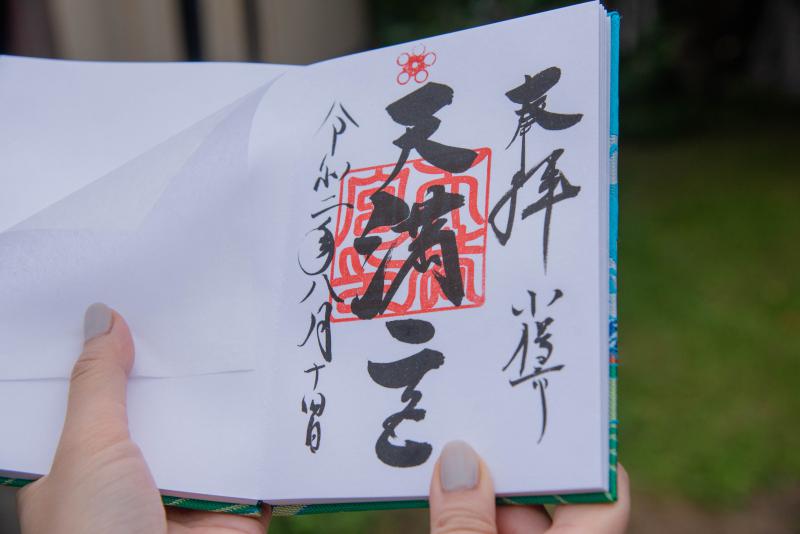 奉拝 小樽
天満宮
令和二年八月十四日